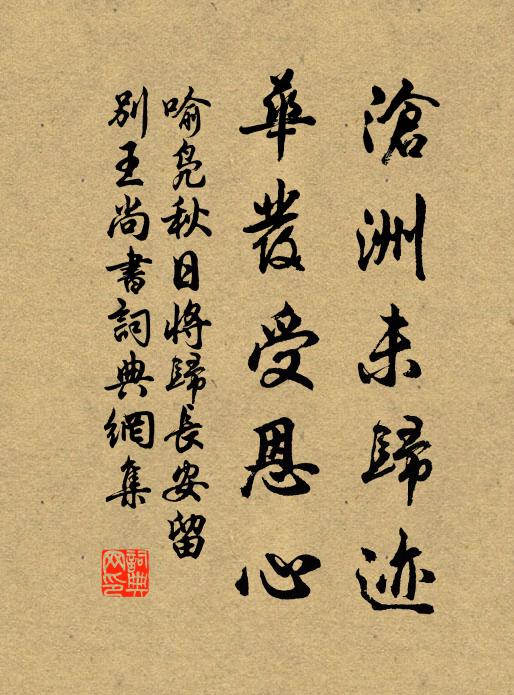 滄洲未歸迹
華發受恩心
喻凫秋日將歸長安留
別王尚書詞典網集
詞典网印